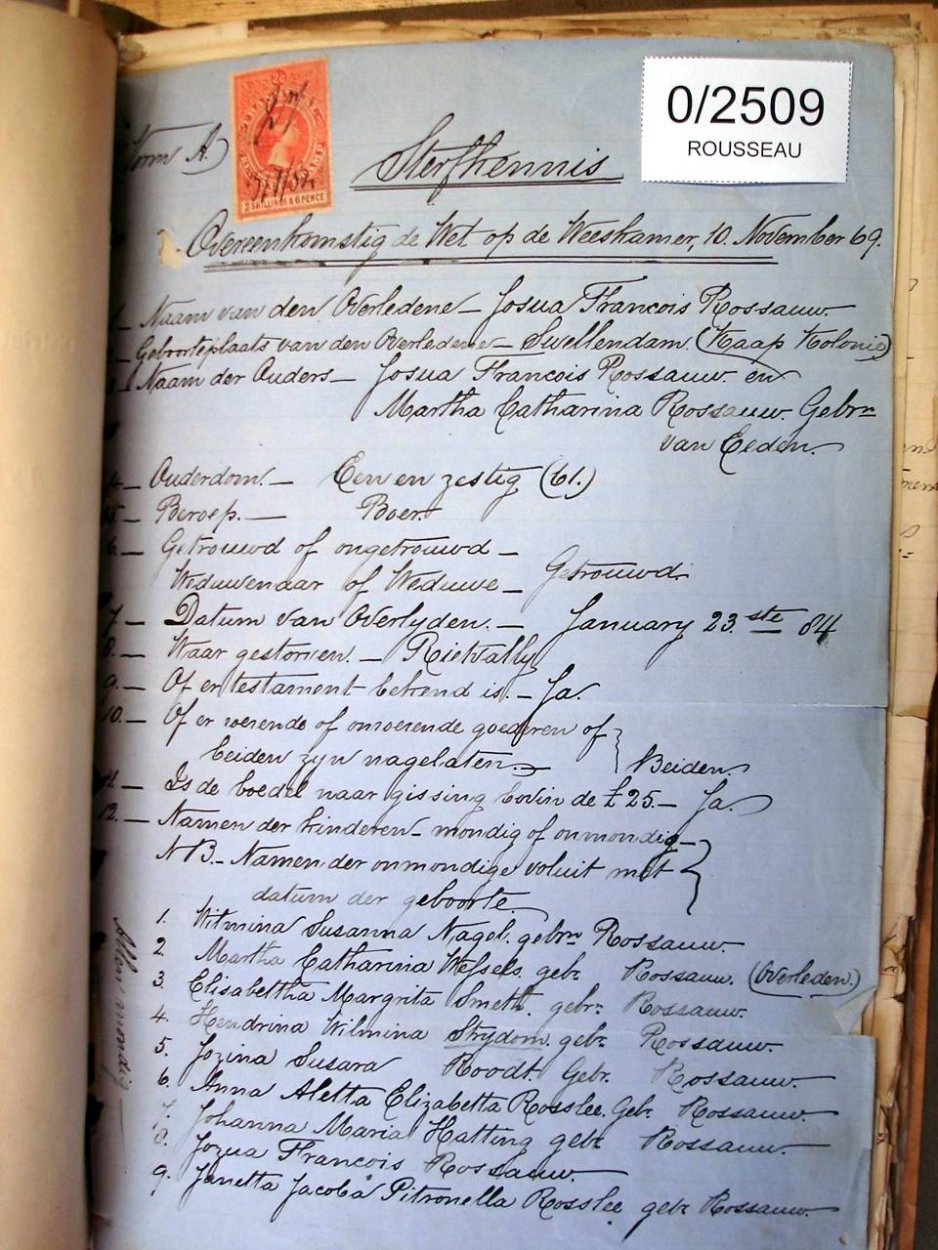 0/2509
ROUSSEAU
Form A)
2 SHILLINGS & 6 PENCE
Sterfkennis
Overeenkomstig de Wet op de Weeskamer, 10. November 69.
Naam van den Overledene - Josua Francois Rossauw.
Geboorteplaats van den Overledene - Swellendam. (Kaap Kolonie)
Naam der Ouders - Josua Francois Rossauw. en
Martha Catharina Rossauw. Gebrn
van Eeden.
4. - Ouderdom. - Een en zestig (61.)
5. - Beroep. - Boer.
6. - Getrouwd of ongetrouwd -
Weduwenaar of Weduwe - Getrouwd.
7. - Datum van Overlyden. - January 23.ste 84
8. - Waar gestorven. - Rietvally
9. - Of er testament bekend is. - Ja.
10. - Of er roerende of onroerende goederen of
beiden zyn nagelaten. - } Beiden.
11. - Is de boedel naar gissing bovin de £25. - Ja.
12. - Namen der kinderen - mondig of onmondig -
NB. - Namen der onmondige voluit met
datum der geboorte.
Allen mondig
1. Wilmina Susanna Nagel. gebrn Rossauw.
2. Martha Catharina Wessels. gebr Rossauw. (Overleden.)
3. Elisabettha Margrita Smith. gebr. Rossauw.
4. Hendrina Wilmina Strydom. gebr Rossauw.
5. Jozina Susara Roodt. Gebr. Rossauw.
6. Anna Aletta Elizabetta Rosslee. Geb. Rossauw.
7. Johanna Maria Hatting gebr Rossauw.
8. Jozua Francois Rossauw.
9. Janetta Jacoba Pitronella Rosslee gebr Rossauw.